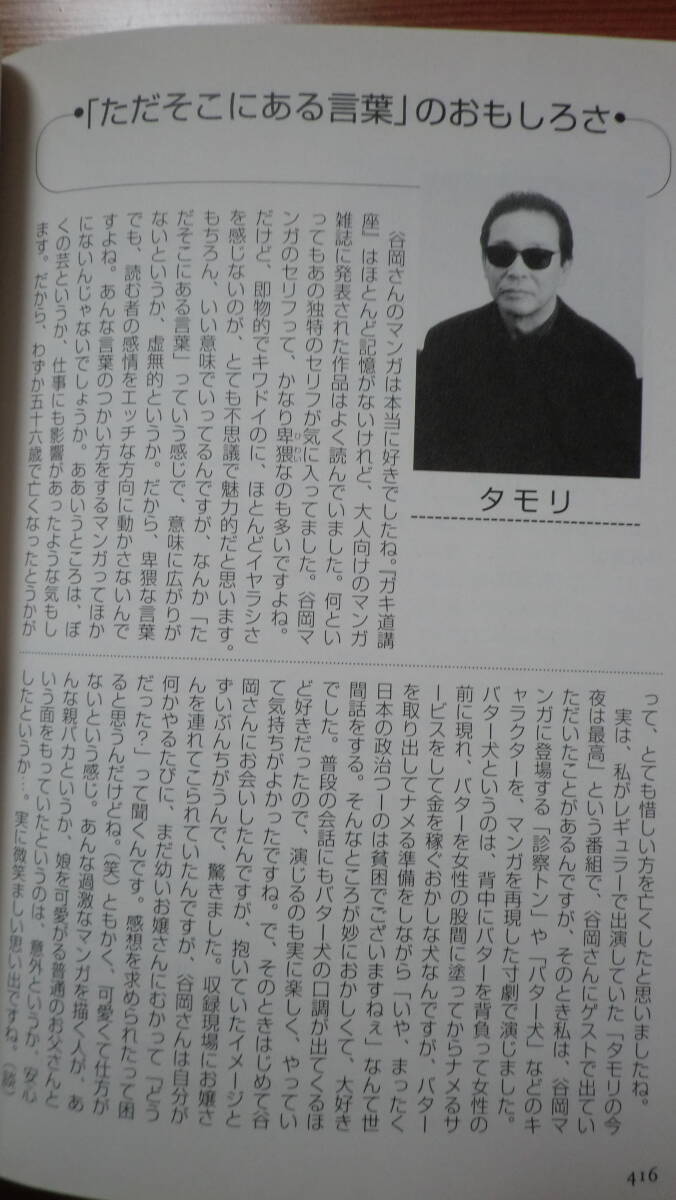 「ただそこにある言葉」のおもしろさ
タモリ
谷岡さんのマンガは本当に好きでしたね。『ガキ道講
座』はほとんど記憶がないけれど、大人向けのマンガ
雑誌に発表された作品はよく読んでいました。何とい
ってもあの独特のセリフが気に入ってました。谷岡マ
ンガのセリフって、かなり卑猥なのも多いですよね。
だけど、即物的でキワドイのに、ほとんどイヤラシさ
を感じないのが、とても不思議で魅力的だと思います。
もちろん、いい意味でいってるんですが、なんか「た
だそこにある言葉」っていう感じで、意味に広がりが
ないというか、虚無的というか。だから、卑猥な言葉
でも、読む者の感情をエッチな方向に動かさないんで
すよね。あんな言葉のつかい方をするマンガってほか
にないんじゃないでしょうか。ああいうところは、ぼ
くの芸というか、仕事にも影響があったような気もし
ます。だから、わずか五十六歳で亡くなったとうかが
って、とても惜しい方を亡くしたと思いましたね。
実は、私がレギュラーで出演していた「タモリの今
夜は最高」という番組で、谷岡さんにゲストで出てい
ただいたことがあるんですが、そのとき私は、谷岡マ
ンガに登場する「診察トン」や「バター犬」などのキ
ャラクターを、マンガを再現した寸劇で演じました。
バター犬というのは、背中にバターを背負って女性の
前に現れ、バターを女性の股間に塗ってからナメるサ
ービスをして金を稼ぐおかしな犬なんですが、バター
を取り出してナメる準備をしながら「いや、まったく
日本の政治つーのは貧困でございますねぇ」なんて世
間話をする。そんなところが妙におかしくて、大好き
でした。普段の会話にもバター犬の口調が出てくるほ
ど好きだったので、演じるのも実に楽しく、やってい
て気持ちがよかったですね。で、そのときはじめて谷
岡さんにお会いしたんですが、抱いていたイメージと
ずいぶんちがうんで、驚きました。収録現場にお嬢さ
んを連れてこられていたんですが、谷岡さんは自分が
何かやるたびに、まだ幼いお嬢さんにむかって「どう
だった？」って聞くんです。感想を求められたって困
ると思うんだけどね。（笑）ともかく、可愛くて仕方が
ないという感じ。あんな過激なマンガを描く人が、あ
んな親バカというか、娘を可愛がる普通のお父さんと
いう面をもっていたというのは、意外というか、安心
したというか…。実に微笑ましい思い出ですね。（談）
416